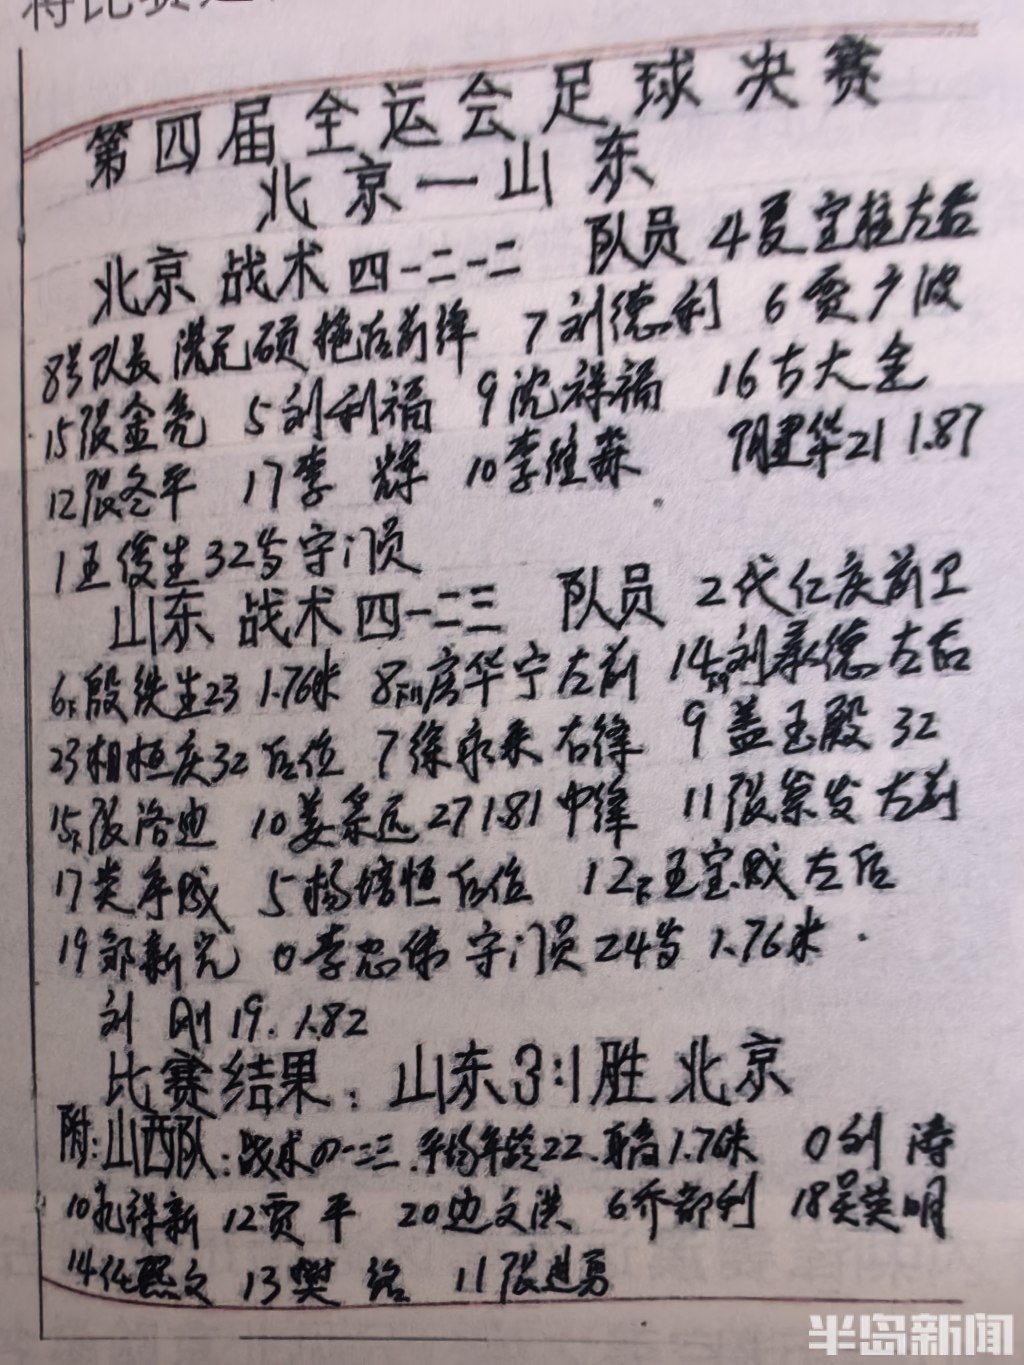 将比赛
第四届全运会足球决赛
北京一山东
北京 战术四一二一二 队员 4夏宝柱左后
8号队长 洪元硕 拖后前锋 7刘德利 6贾广波
15张金亮 5刘利福 9沈祥福 16古大全
12张冬平 17李辉 10李维淼 阴建华21 1.87
1王俊生32岁守门员
山东 战术四一二三 队员 2代仁庆前卫
6殷铁生23 1.76米 8房华宁左前 14刘永德左后
23相恒庆32后位 7徐永来右锋 9盖玉殿32
15张洛迪 10姜采远27 1.81中锋 11张宗发左前
17类序成 5杨培恒后位 12王宝成左后
19邹新光 0李忠伟 守门员24岁 1.76米.
刘刚19. 1.82
比赛结果:山东3:1胜北京
附:山西队:战术四一二三.平均年龄22.身高1.76米 0刘涛
10祥新 12贾平 20边文洪 6乔都利 18吴英明
14任熙文 13樊 11张进勇
半岛新闻